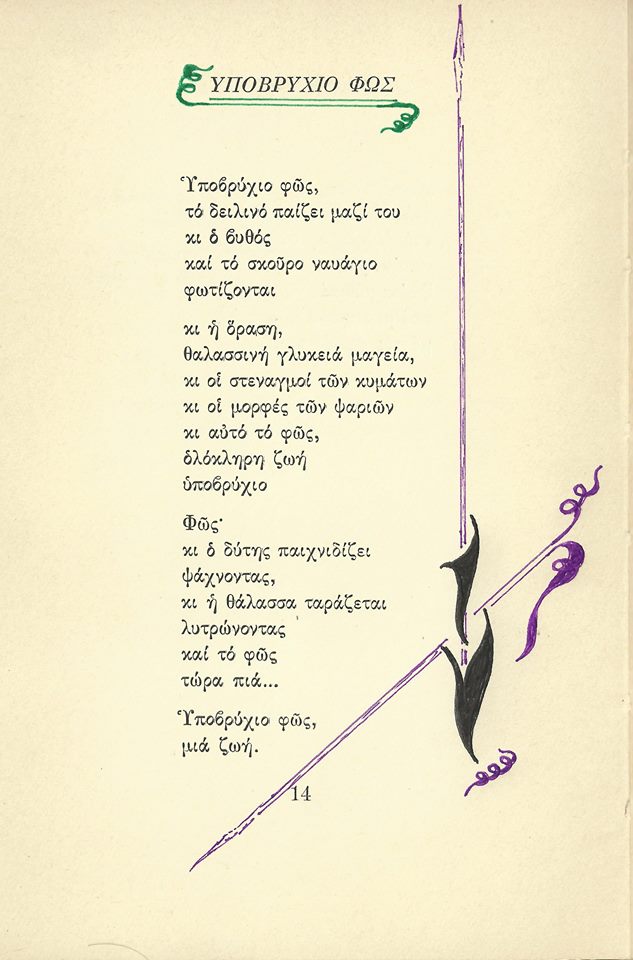 ΥΠΟΒΡΥΧΙΟ ΦΩΣ
Ὑποβρύχιο φῶς,
τό δειλινό παίζει μαζί του
κι ὁ βυθός
καί τό σκοῦρο ναυάγιο
φωτίζονται
κι ἡ ὅραση,
θαλασσινή γλυκειά μαγεία,
κι οἱ στεναγμοί τῶν κυμάτων
κι οἱ μορφές τῶν ψαριῶν
κι αὐτό τό φῶς,
ὁλόκληρη ζωή
ὑποβρύχιο
Φῶς·
κι ὁ δύτης παιχνιδίζει
ψάχνοντας,
κι ἡ θάλασσα ταράζεται
λυτρώνοντας
καί τό φῶς
τώρα πιά...
Ὑποβρύχιο φῶς,
μιά ζωή.
14